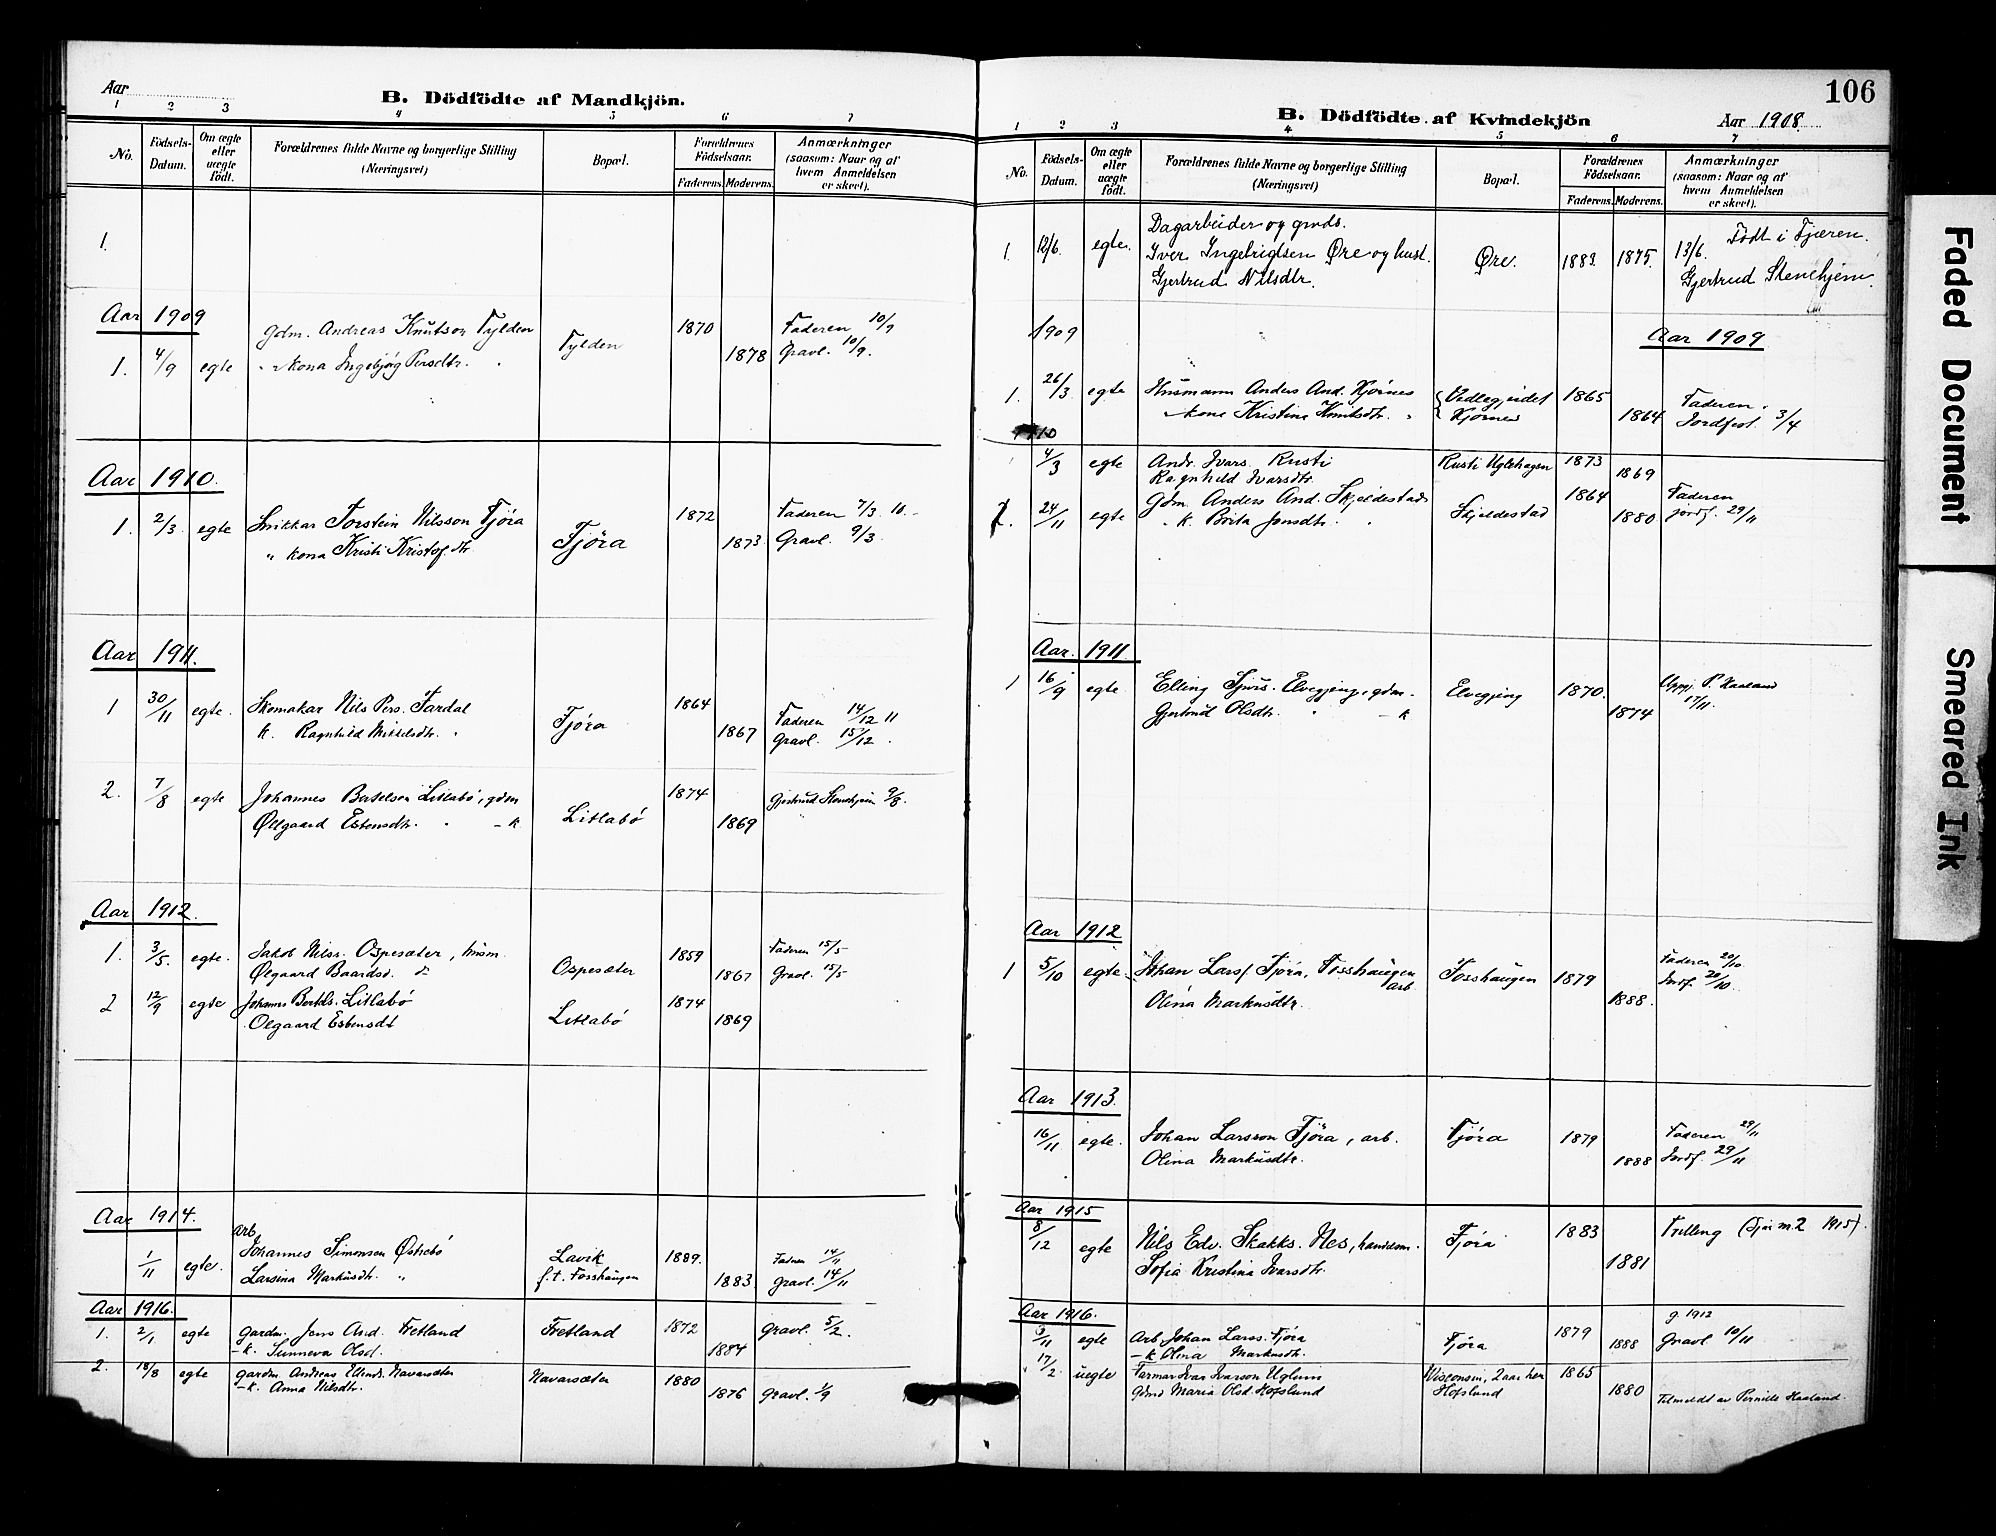 Aar
B. Dödfödte af Mandkjön.
1 2 3 4 5 6 7
No.
Födsels-
Datum.
Om ægte
eller
uægte
födt.
Forældrenes fulde Navne og borgerlige Stilling
(Næringsvei)
Bopæl.
Forældrenes
Födselsaar.
Faderens. Moderens.
Anmærkninger
(saasom: Naar og af
hvem Anmeldelsen
er skeet).
1.
Aar 1909
Gdm. Andreas Knutson Tylden 1870 Faderen 10/9
1. 4/9 egte " kona Ingebjørg Persdtr. " Tylden 1878 Gravl. 10/9.
Aar 1910.
1. 2/3. egte Snikkar Torstein Nilsson Fjöra 1872 Faderen 7/3. 10.
" kona Kristi Kristof.dtr. Fjöra 1873 Gravl. 9/3.
Aar 1911.
1 30/11 egte. Skomakar Nils Pers. Fardal 1864 Faderen 14/12 11
k. Ragnhild Mikkelsdtr. " Fjöra 1867 Gravl. 15/12.
2. 7/8 egte Johannes Bertelsen Litlabö, gdm 1874 Gjertrud Stenehjem 9/8.
Ølegaard Esbensdtr. " - k. Litlabö 1869
Aar 1912.
1. 3/5. egte. Jakob Nilss. Ospesæter, husm. 1859 Faderen 15/5
Ølgaard Baardsd. Ospesæter 1867 Gravl. 15/5
2 12/9 egte Johannes Bertels. Litlabö 1874
Olegaard Esbensdt Litlabö 1869
Aar 1914.
arb.
1/11 egte. Johannes Simonsen Østrebö Lavik 1889. Faderen 14/11
Larsina Markusdtr. " f.t. Fosshaugen 1883 Gravl. 14/11
Aar 1916.
1. 2/1 egte gardm. Jens And. Fretland Fretland 1872 Gravl. 5/2.
- k. Sunneva Olsd. 1884
2. 18/8 egte gardm. Andreas Ellends. Navarsæter Navarsæter 1880
- k. Anna Nilsdtr. 1876 Gravl. 1/9
106
B. Dödfödte af Kvindekjön
Aar 1908.
1 2 3 4 5 6 7
No.
Födsels-
Datum.
Om ægte
eller
uægte
födt.
Forældrenes fulde Navne og borgerlige Stilling
(Næringsvei)
Bopæl.
Forældrenes
Födselsaar.
Faderens. Moderens.
Anmærkninger
(saasom: Naar og af
hvem Anmeldelsen
er skeet).
Dagarbeider og gmds. Födt i Fjæren.
1. 12/6. egte. Iver Ingebrigtsen Øre og hust. Øre. 1883. 1875. 13/6.
Gjertrud Nilsdtr. Gjertrud Stenehjem.
1909 Aar 1909
1. 26/3. egte Husmann Anders And. Kjörnes Vedlegjeidet 1865 Faderen.
kone Kristina Knutsdtr. " Kjörnes 1864 Jordfest. 3/4
1910
4/3 egte Andr. Ivars. Rusti Rusti Uglehagen 1873
Ragnhild Ivarsdtr. 1869
2. 24/11 egte Gdm. Anders And. Skjeldestad Skjeldestad 1864 Faderen
" k. Brita Jensdtr. " 1880 jordf. 29/11
Aar. 1911.
1 16/9 egte. Elling Elvegjing, gdm. Elvegjing 1870. P. Haaland
Gjertrud Olsdtr. " - k 1874 17/11.
Aar 1912
1 5/10 egte. Johan Larss. Fjöra, Fosshaugen Fosshaugen 1879 Faderen 20/10.
arb.
Olina Markusdtr. 1888. Jordf. 20/10.
Aar 1913.
16/11 egte. Johan Larsson Fjöra, arb. Fjöra 1879 Faderen 29/11
Olina Markusdtr. 1888 Jordf. 29/11
Aar 1915
8/12 egte Nils Edv. Skakks. Nes, handsm. Fjöra 1883 Trilling (Sjå m. 2 1915).
Sofia Kristina Ivarsdtr. 1881
Aar 1916. g. 1912
3/11 egte Arb. Johan Larss. Fjöra Fjöra 1879 Gravl 10/11
- k Olina Markusdtr. 1888
17/2 uegte Farmar Ivar Ivarson Uglum Wisconsin, 2 aar her 1865
Gdmd Maria Olsd. Hofslund Hofslund 1880 Tilmeldt av Pernille Haaland.
Faded Document
Smeared Ink